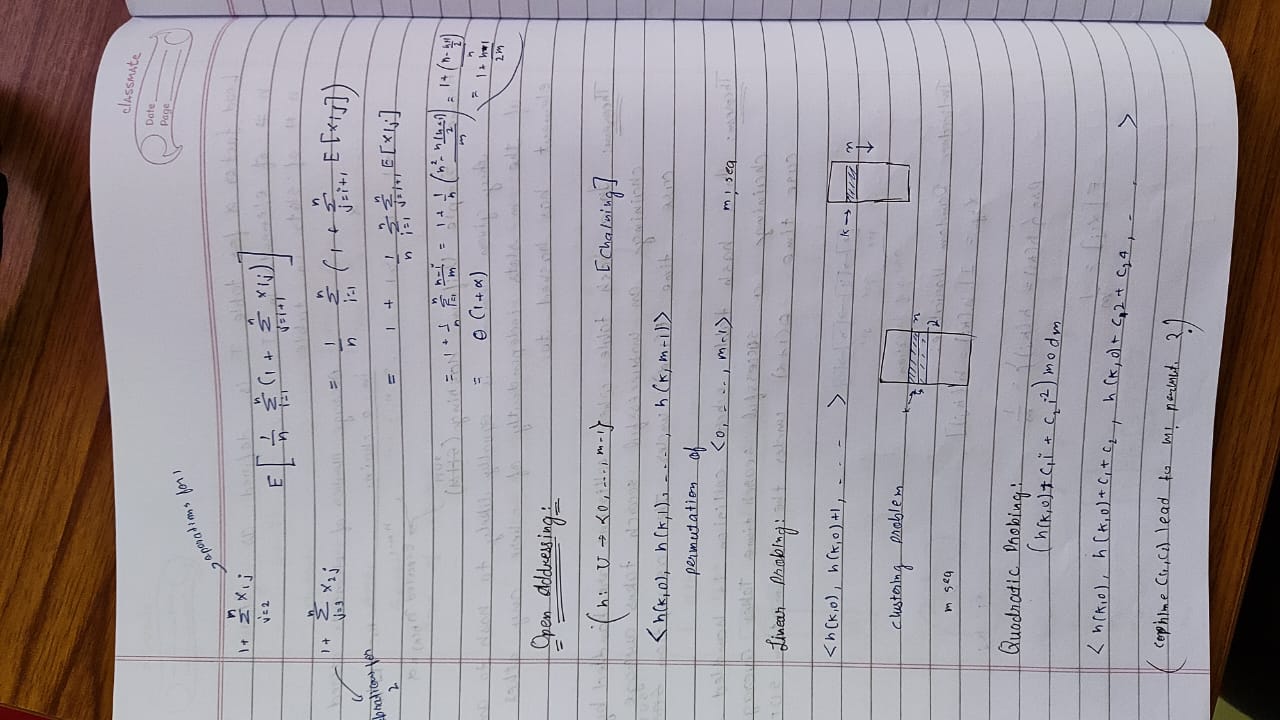 classmate
Date
Page
operations for 1
1 + Σ_{j=2}^{n} X_{1j}
E[ 1/n Σ_{i=1}^{n} (1 + Σ_{j=i+1}^{n} X_{ij}) ]
1 + Σ_{j=3}^{n} X_{2j} = 1/n Σ_{i=1}^{n} (1 + Σ_{j=i+1}^{n} E[X_{ij}])
operations for 2
= 1 + 1/n Σ_{i=1}^{n} Σ_{j=i+1}^{n} E[X_{ij}]
= 1 + 1/n Σ_{i=1}^{n} (n-i)/m = 1 + 1/n (n² - n(n+1)/2)/m = 1 + (n - (n+1)/2)
= Θ(1+α) = 1 + (n-1)/2m
Open Addressing:
(h: U → {0, ..., m-1} [Chaining]
<h(k,0), h(k,1), ....., h(k,m-1)>
permutation of
<0, ..., m-1> m! seq
Linear Probing:
<h(k,0), h(k,0)+1, ---- > k → n
clustering problem k → n
2
m seq
Quadratic Probing:
(h(k,0) + c₁i + c₂i²) mod m
<h(k,0), h(k,0)+c₁+c₂, h(k,0)+c₁2+c₂4, - - - >
(coprime (c₁,c₂) lead to m! permut. ?)